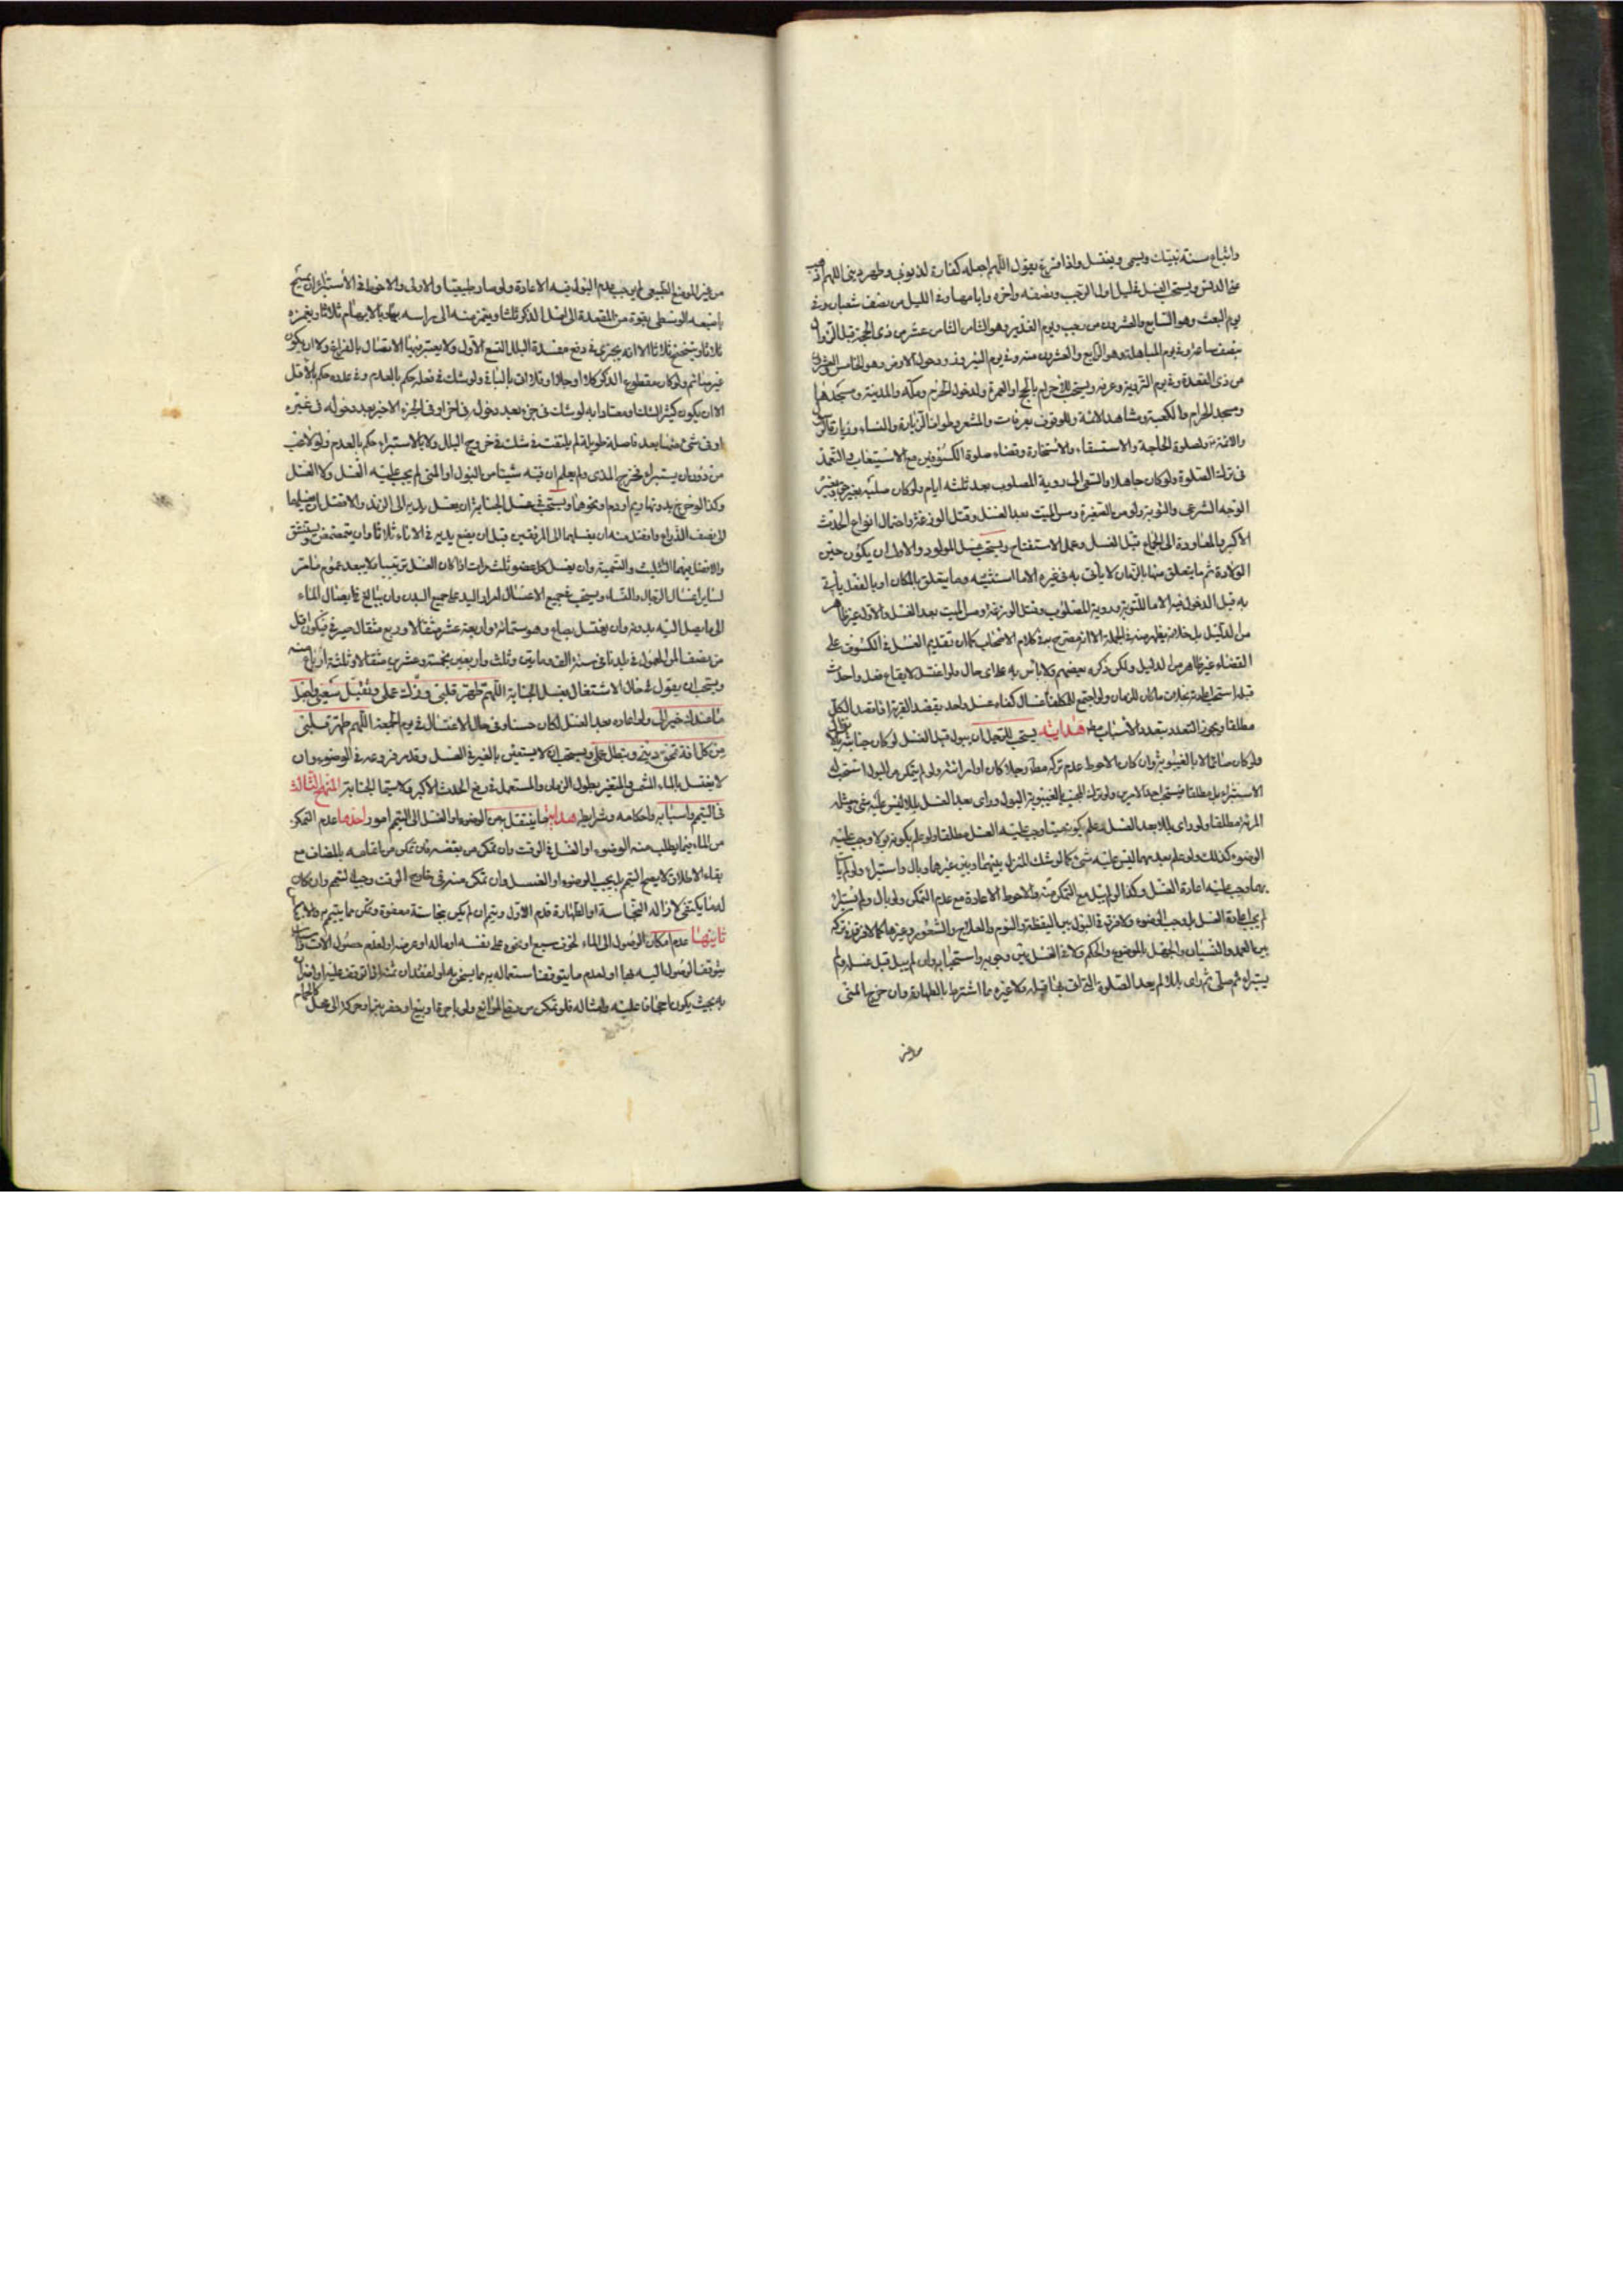 واتباع سنة نبيك ويسمى ويغتسل واذا فرغ يقول اللهم اجعله كفارة لذنوبي وطهر ديني اللهم اذهب
عنى الدنس ويستحب الغسل في ليل اول الرجب ونصفه واخره وايامها وفى الليل من نصف شعبان وفى
يوم البعث وهو السابع والعشرون من رجب ويوم الغدير وهو الثامن عشر من ذى الحجة قبل الزوال
بنصف ساعة وفى يوم المباهلة وهو الرابع والعشرون منه وفى يوم النيروز ودحو الارض وهو الخامس والعشرون
من ذى القعدة وفى يوم التروية وعرفة ويستحب للاحرام بالحج او العمرة ولدخول الحرم ومكة والمدينة ومسجدهما
ومسجد الحرام والكعبة ومشاهد الائمة وللوقوف بعرفات والمشعر وطواف الزيارة والنساء وزيارة
والائمة ولصلوة الحاجة والاستسقاء والاستخارة وقضاء صلوة الكسوفين مع الاستيعاب والتعمد
فى ترك الصلوة ولو كان جاهلا والسعى الى روية المصلوب بعد ثلثه ايام ولو كان صلبه بغير
الوجه الشرعى والتوبة ولو من الصغيرة ومس الميت بعد الغسل وقتل الوزغة واحتمال انواع الحدث
الاكبر والمعاودة الى الجماع قبل الغسل وعمل الاستفتاح ويستحب غسل المولود والاولى ان يكون حين
الولادة ثم ما يتعلق منها بالزمان لا يأتى به فى غيره الا ما استثنيته وما يتعلق بالمكان او بالفعل يأتى
به قبل الدخول فيه الا ما للتوبة وروية المصلوب وقتل الوزغة ومس الميت بعد الغسل والاول غير ظاهر
من الدليل بل خلافه يظهر منه فى الجملة الا انه مصرح به فى كلام الاصحاب كما ان تقديم الغسل فى الكسوف على
القضاء غير ظاهر من الدليل ولكن ذكره بعضهم ولا بأس به على اى حال ولو اغتسل لايقاع فعل واحدث
قبله استحب اعادته بخلاف ما كان للزمان ولو اجتمع للمكلف اغسال كفاه غسل واحد بقصد القربة اذا قصد الكل
مطلقا ويجوز التعدد بتعدد الاسباب هداية يستحب للرجل ان يبول قبل الغسل لو كان جنابته بالانزال
ولو كان صائما لا بالغيبوبة وان كان الاحوط عدم تركه مطلقا رجلا كان او امراة ولو لم يتمكن من البول استحب له
الاستبراء بل مطلقا فيستحب احد الامرين ولو ترك المجنب بالغيبوبة البول وراى بعد الغسل بللا ليس عليه شىء ومثله
المرئة مطلقا ولو راى بللا بعد الغسل وعلم بكونه منيا وجب عليه الغسل مطلقا ولو علم بكونه بولا وجب عليه
الوضوء كذلك ولو علم بعدمهما ليس عليه شىء كما لو شك المنزل بينهما وبين غيرهما وبال واستبراء ولو لم يأت
بهما وجب عليه اعادة الغسل وكذا لو لم يبل مع التمكن منه والاحوط الاعادة مع عدم التمكن ولو بال ولم يستبرء
لم يجب اعادة الغسل بل وجب الوضوء ولا فرق فى البول بين اليقظة والنوم والعلاج والشعور وغيرها كما لا فرق فى تركه
بين العمد والنسيان والجهل بالموضوع والحكم ولا فى الغسل بين وجوبه واستحبابه وان لم يبل قبل غسله ولم
يستبرء ثم صلى ثم راى بللا لم يعد الصلوة التى اتت بها قبله ولا غيره ما اشترط بالطهارة وان خرج المنى
من غير
من غير الموضع الطبيعى لم يوجب عدم البول فيه الاعادة ولو صار طبيعيا والاولى والاحوط فى الاستبراء ان يمسح
باصبعه الوسطى بقوة من المقعدة الى اصل الذكر ثلثا ويتم منه الى راسه بها وبالابهام ثلاثا ويغمزه
ثلاثا ويتنحنح ثلاثا الا انه يجزى فى دفع مفسدة البلل التسع الاول ولا يعتبر فيها الاتصال بالفراغ ولا ان يكون
غير مباشر ولو كان مقطوع الذكر كلا او جلا او ثلاثا بالباقى ولو شك فى فعله حكم بالعدم وفى عدده حكم بالاقل
الا ان يكون كثير الشك او معتادا به لو شك فى جزء بعد دخوله فى اخر او فى الجزء الاخير بعد دخوله فى غيره
او فى شىء منها بعد فاصلة طويلة لم يلتفت فى شك فى خروج البلل ولا بالاستبراء حكم بالعدم ولو لاعب
من دون ان يستبراء فخرج المذى ولم يعلم ان فيه شيئا من البول او المنى لم يجب عليه الغسل ولا الغسل
وكذا لو خرج بدونهما ريم او دم ونحوها ويستحب فى غسل الجنابة ان يغسل يديه الى الزند والافضل ان يغسلهما
الى نصف الذراع وافضل منه ان يغسلهما الى المرفقين قبل ان يضع يديه فى الاناء ثلاثا وان يتمضمض ويستنشق
والافضل فيهما التثليث والتسمية وان يغسل كل عضو ثلث مرات اذا كان الغسل ترتيبا ولا يبعد عموم ما مر
لساير اغسال الرجال والنساء ويستحب فى جميع الاغسال امرار اليد على جميع البدن وان يبالغ فى ايصال الماء
الى ما يصل اليه بدونه وان يغتسل بصاع وهو ستمائة واربعة عشر مثقالا وربع مثقال صيرفى فيكون اقل
من نصف المن المعمول فى بلدنا فى سنة الف ومايتين وثلث واربعين بخمسة وعشرين مثقالا وثلثة ارباع منه
ويستحب ان يقول فى حال الاشتغال بغسل الجنابة اللهم طهر قلبى وزك عملى وتقبل سعيى واجعل
ما عندك خيرا لى ولو اعاده بعد الغسل لكان حسنا وفى حال الاغتسال فى يوم الجمعة اللهم طهر قلبى
من كل افة تمحق دينى وتبطل عملى ويستحب ان لا يستعين بالغير فى الغسل وقد مر فروعه فى الوضوء وان
لا يغتسل بالماء المشمس والمتغير بطول الزمان والمستعمل فى رفع الحدث الاكبر ولا سيما الجنابة المنهج الثالث
فى التيمم واسبابه واحكامه وشرايطه هداية ما ينتقل به من الوضوء او الغسل الى التيمم امور احدها عدم التمكن
من الماء فيما يطلب منه الوضوء او الغسل فى الوقت وان تمكن من بعضه فان تمكن من اتمامه بالمضاف مع
بقاء الاطلاق لا يصح التيمم بل يجب الوضوء او الغسل وان تمكن منه فى خارج الوقت وجب التيمم وان كان
له ما يكتفى لازاله النجاسة او الطهارة قدم الاول ويتيمم ان لم يكن بنجاسة معفوة وتمكن مما يتيمم به
ثانيها عدم امكان الوصول الى الماء لخوف سبع او نحوه على نفسه او ماله او عرضه او لعدم حصول الالات
يتوقف الوصول اليه بها او لعدم ما يتوقف استعماله به مما يسخن به او لفقدان ثمنه اذا توقف عليه او
به بحيث يكون اجحافا عليه وامثاله فلو تمكن من رفع الموانع ولو باجرة او بيع او حفر بئر او حركة الى محل كالحمام